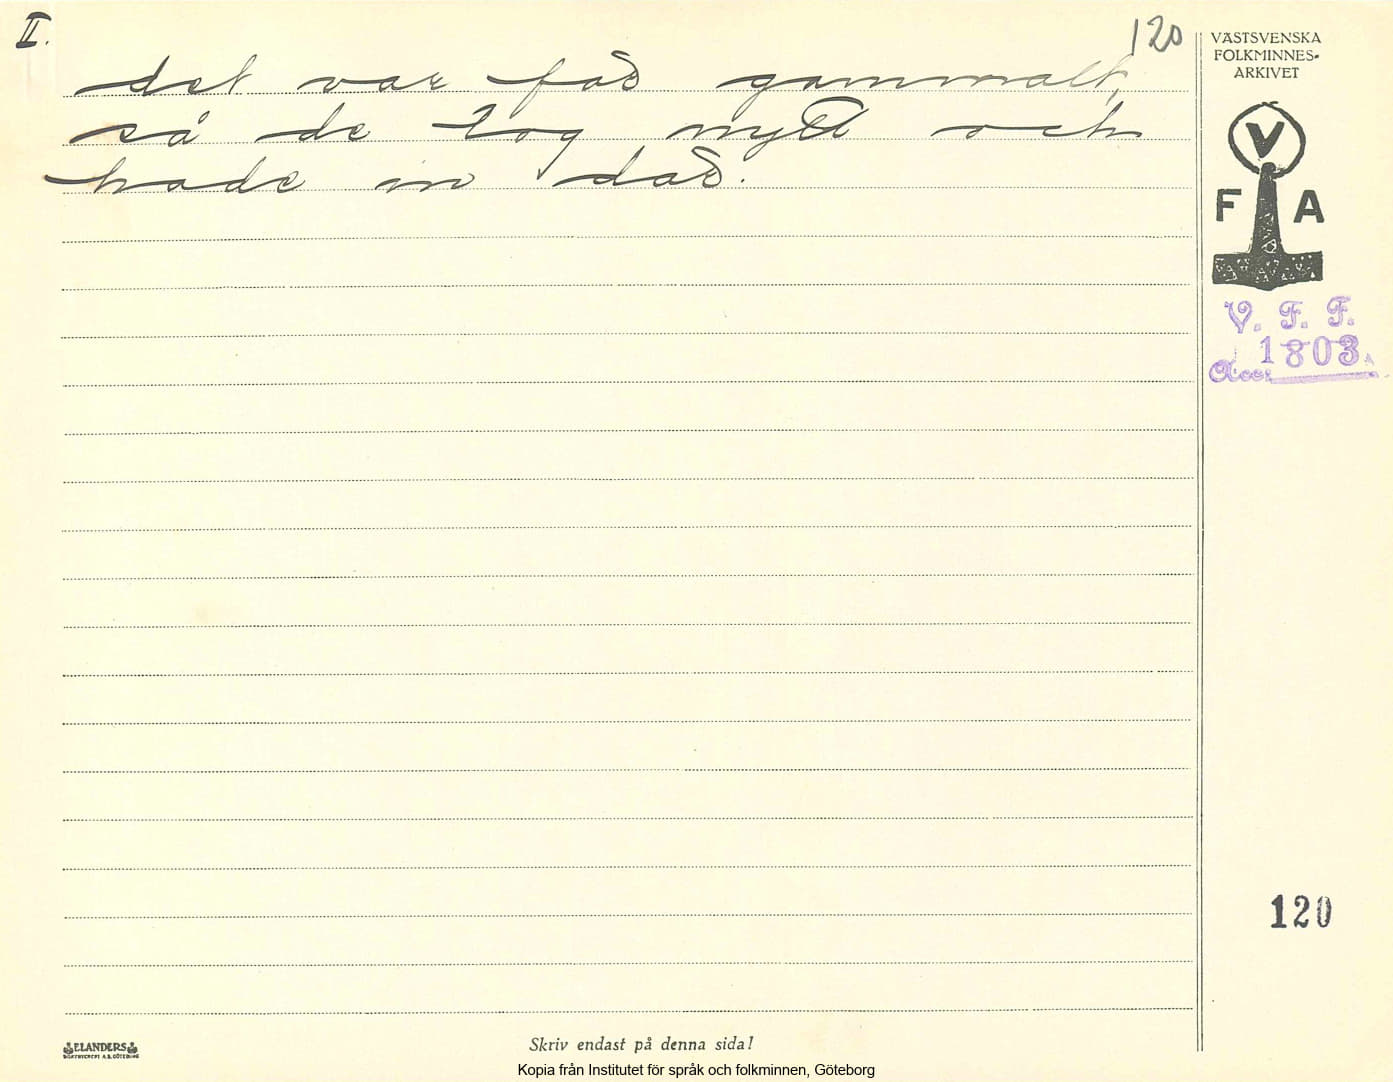 II.
120
VÄSTSVENSKA
FOLKMINNES-
ARKIVET
det var för gammalt,
så de tog nytt och
hade in där.
V
F A
V. F. F.
Acc: 1803
120
ELANDERS
BOKTRYCKERI A.B. GÖTEBORG
Skriv endast på denna sida!
Kopia från Institutet för språk och folkminnen, Göteborg